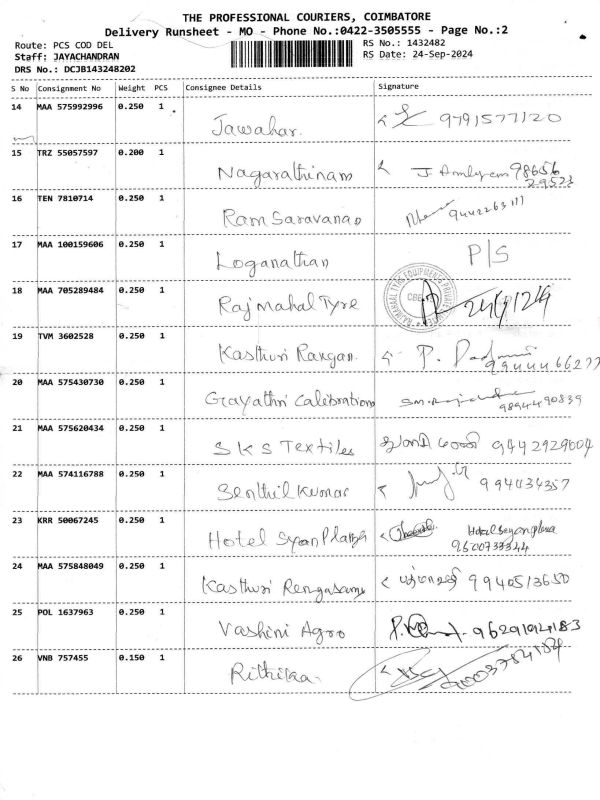 THE PROFESSIONAL COURIERS, COIMBATORE
Delivery Runsheet - MO - Phone No.:0422-3505555 - Page No.:2
Route: PCS COD DEL RS No.: 1432482
Staff: JAYACHANDRAN RS Date: 24-Sep-2024
DRS No.: DCJB143248202
S No Consignment No Weight PCS Consignee Details Signature
14 MAA 575992996 0.250 1 Jawahar. 9791577120
15 TRZ 55057597 0.200 1 Nagarathinam 98656
29523
16 TEN 7810714 0.250 1 Ram Saravanan 9442263111
17 MAA 100159606 0.250 1 Loganathan P/S
18 MAA 705289484 0.250 1 Rajmahal Tyre
19 TVM 3602528 0.250 1 Kasthuri Rangan. P. Padmini
9944466277
20 MAA 575430730 0.250 1 Gayathri Calibrations
9894490839
21 MAA 575620434 0.250 1 SKS Textiles 9442929004
22 MAA 574116788 0.250 1 Senthil Kumar 994434357
23 KRR 50067245 0.250 1 Hotel Syan Plaza
9600733344
24 MAA 575848049 0.250 1 Kasthuri Rengasamy 9940513650
25 POL 1637963 0.250 1 Vashini Agro 9629194183
26 VNB 757455 0.150 1 Rithika.